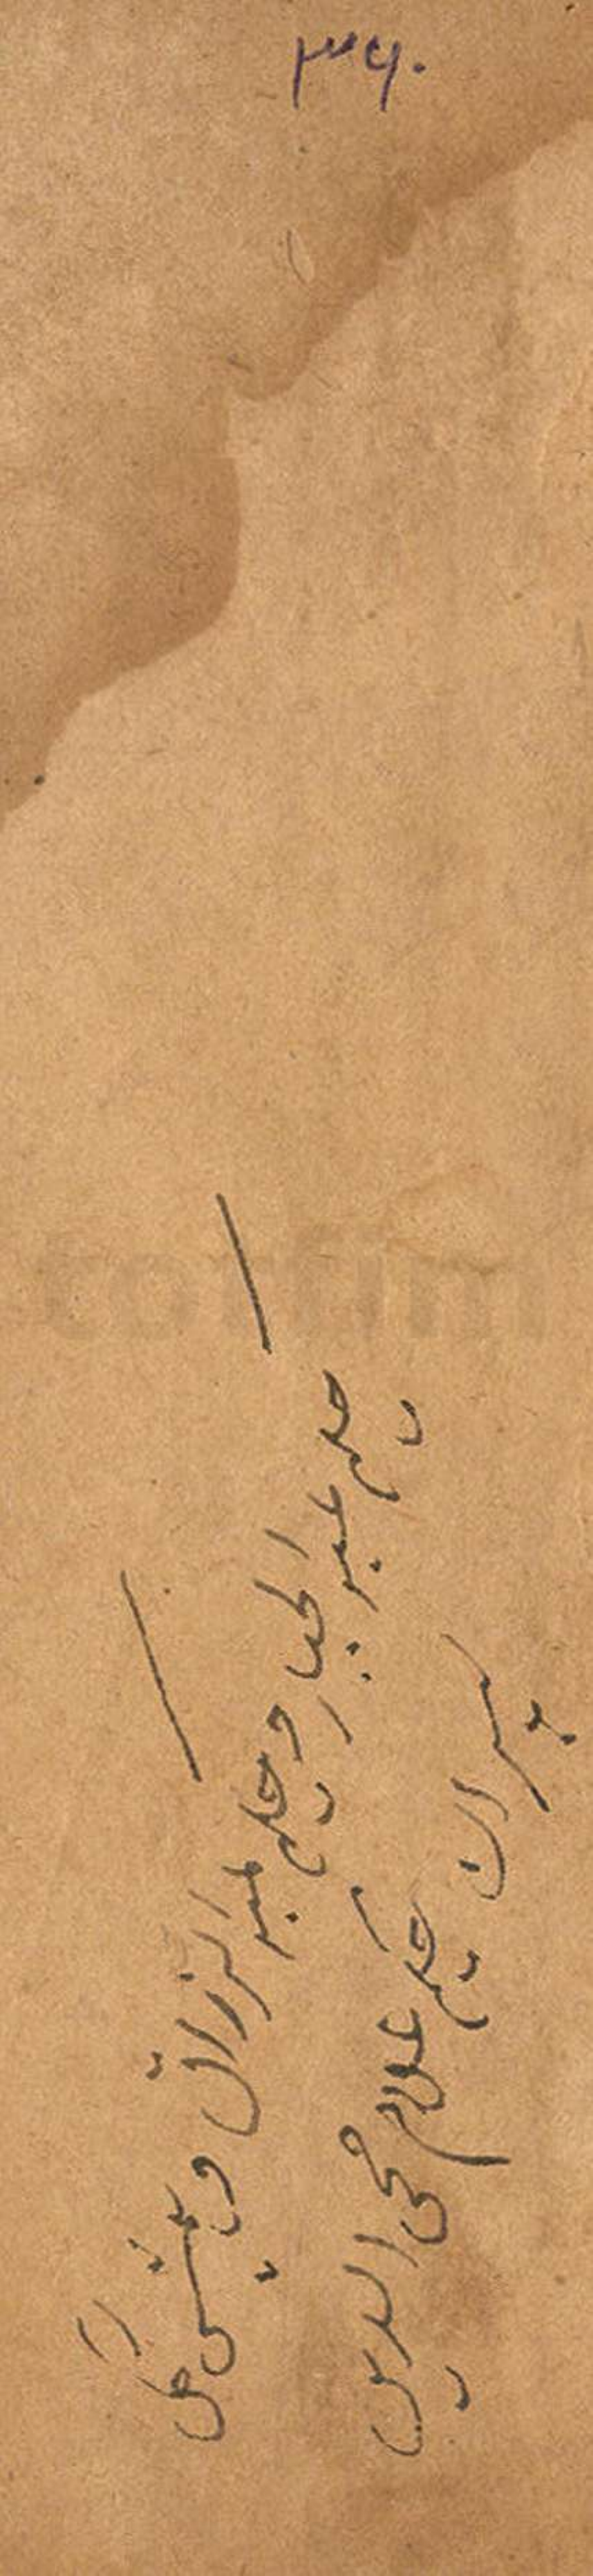 ۳۶۰
حکیم عبدالجبار و حکیم عبدالرزاق و
پسران حکیم غلام محی الدین